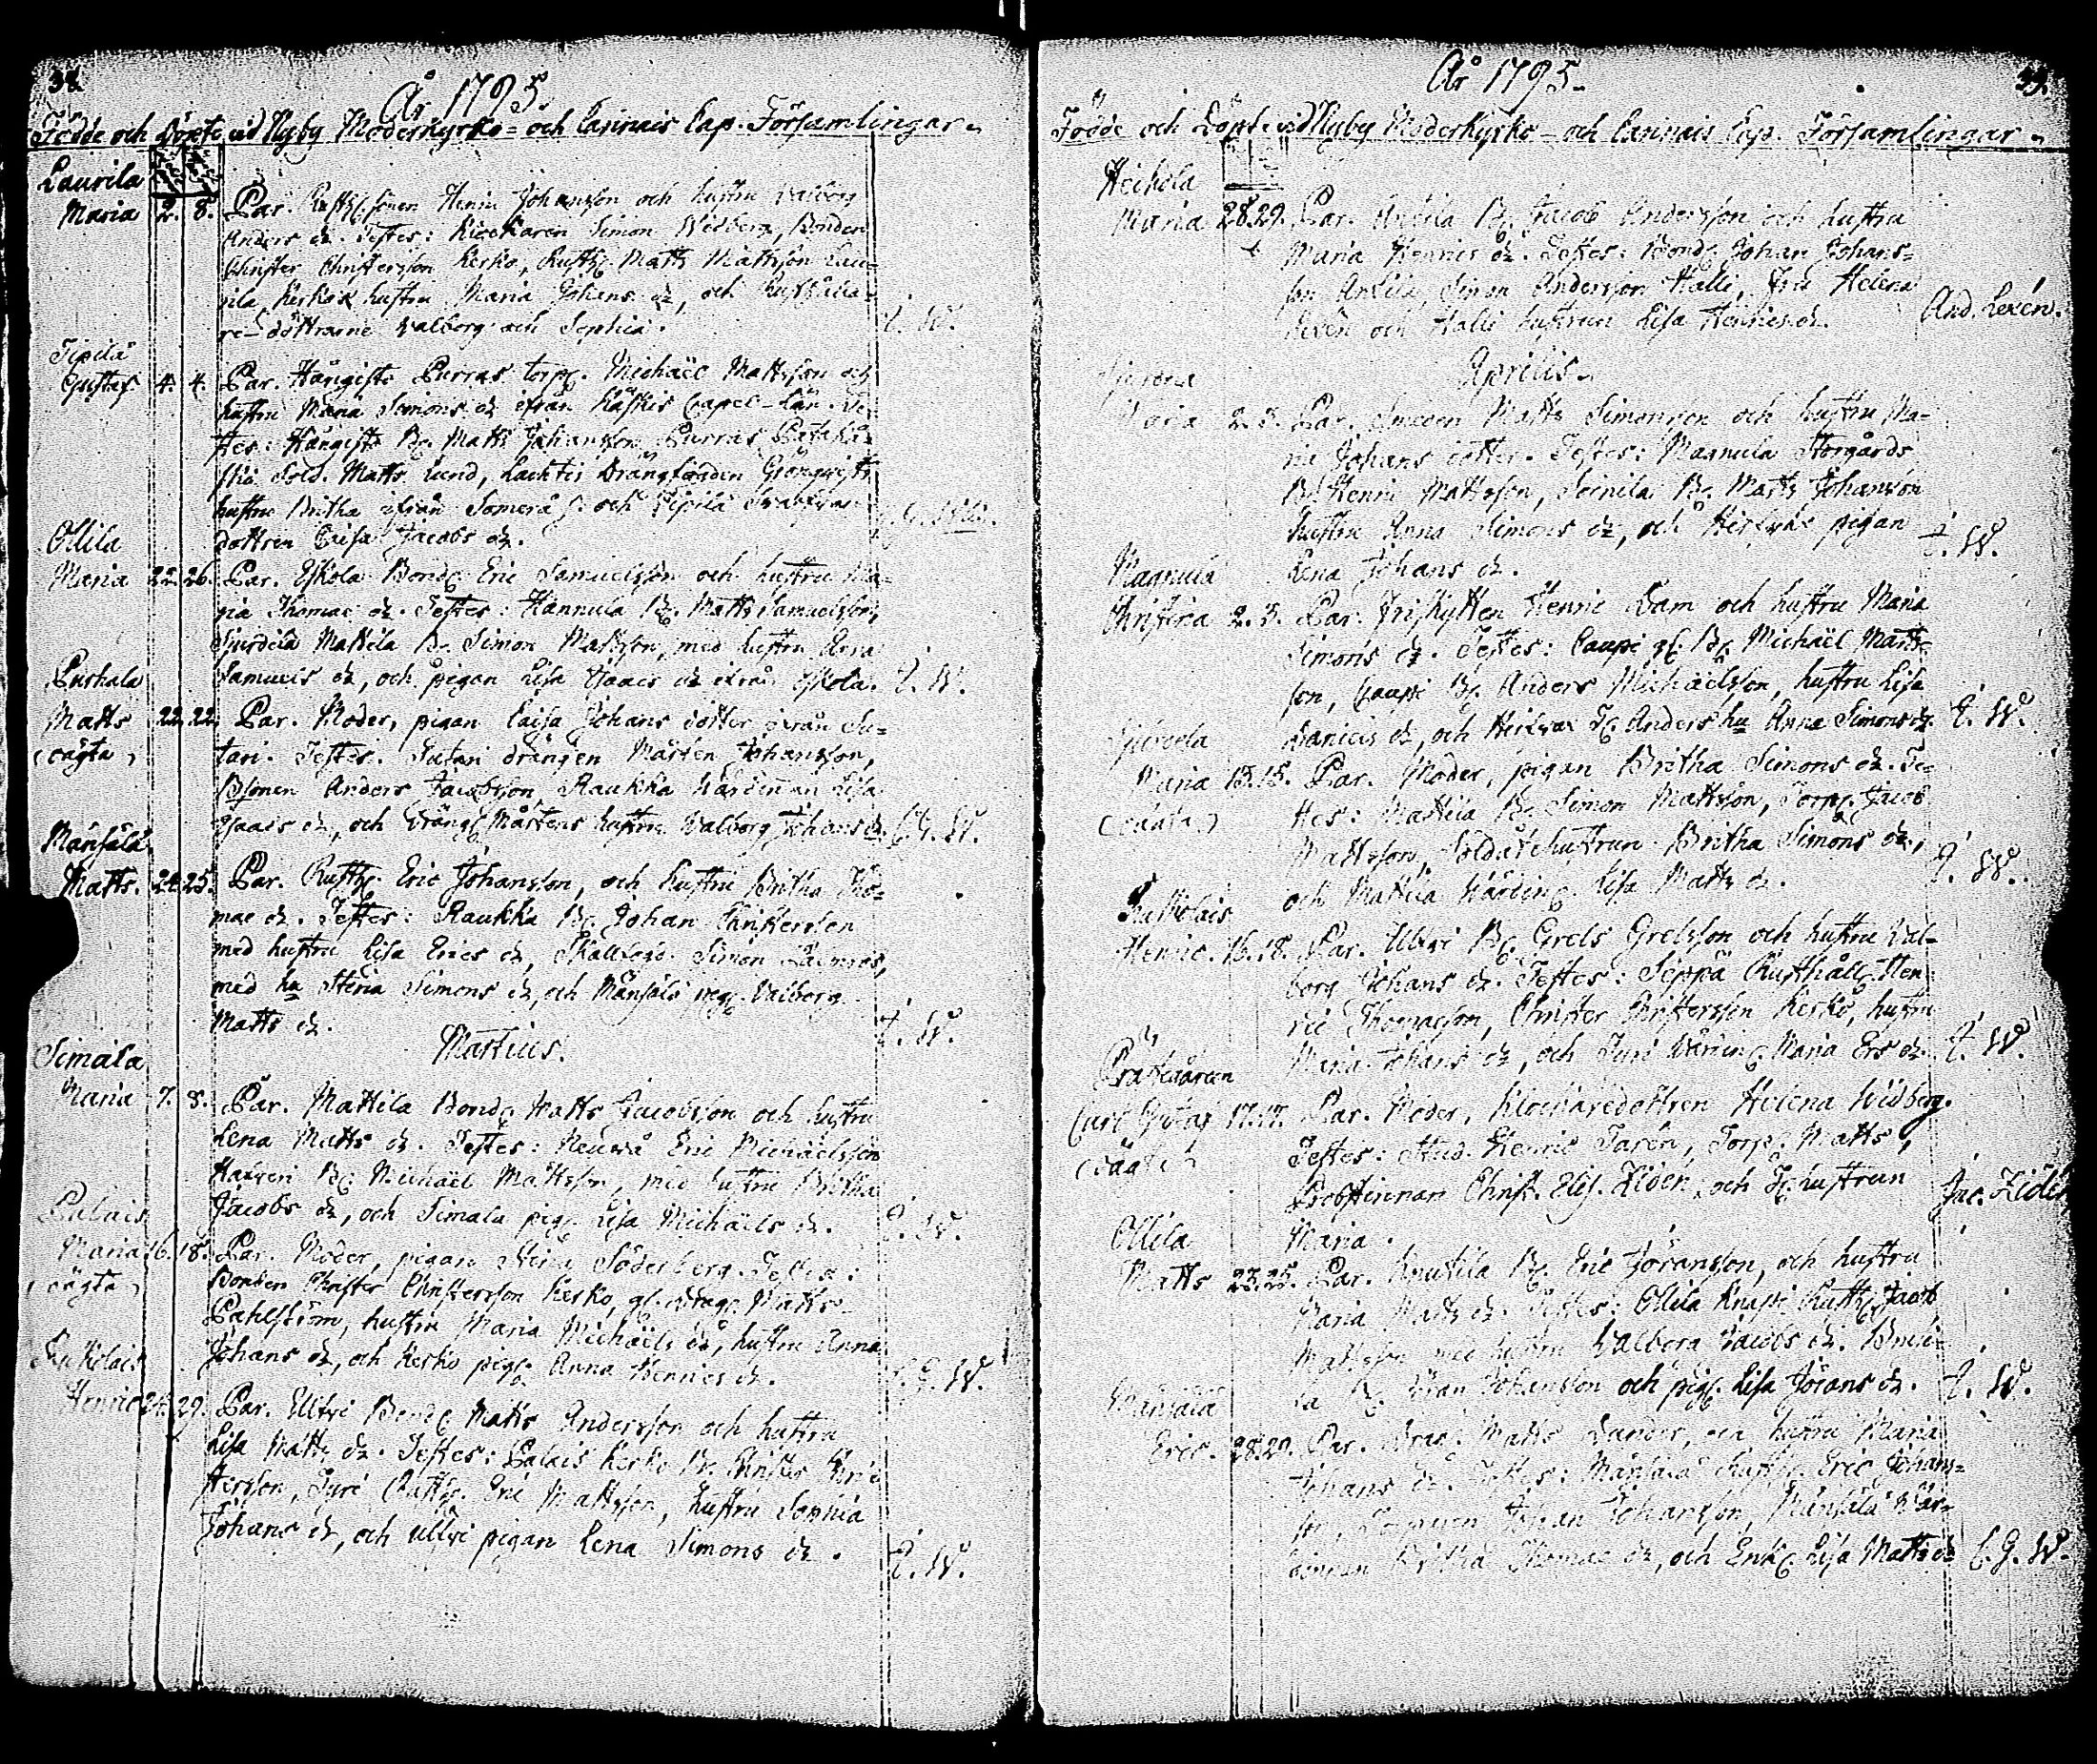 38.
År 1795.
Födde och Döpte vid Nyby Moderkyrko- och Carinais Cap. Församlingar.
Laurila
Maria 2. 8. Par. Rusth. sonen Henric Johansson och hustru Valborg
Anders dr. Testes: Simon Widberg, Bonden
Christer Christersson Kesko, Rusth. Matts Mattsson Lau-
rila, Keskos hustru Maria Johans dr, och
re-döttrarne Valborg och Sophia.
Tipilä
Gustaf 4. 4. Par. Hångisto Purras torp. Michaël Mattsson och
hustru Maria Simons dr ifrån Koskis Capel-Län. Te-
stes: Hångisto B. Matts Johansson Purras
Sold. Matts Lund,
hustru Britha ifrån Somerå S. och Tipilä
dottren Caisa Jacobs dr.
Ollila
Maria 22. 26. Par. Yskola Bond. Eric Samuelsson och hustru Ma-
ria Thomae dr. Testes: Hannula B. Matts Samuelsson,
Mattila B. Simon Mattsson, med hustru Anna
Samuels dr, och pigan Lisa Isaacs dr ifrån Yskola. E. W.
Matts 22. 22. Par. Moder, pigan Caisa Johans dotter ifrån Su-
(oägta) tari. Testes. Sutari drängen Mårten Johansson,
Bsonen Anders Jacobsson, Raukka Wärdinnan Lisa
Isaacs dr, och Dräng. Mårtens hustru Valborg Johans dr. E. G. W.
Månsälä
Matts. 24. 25. Par. Rusth. Eric Johansson, och hustru Britha Tho-
mae dr. Testes: Raukka B. Johan Christersson
med hustru Lisa Erics dr, Simon
med hu Stina Simons dr, och Månsälä pig. Valborg
Matts dr. E. W.
Martius.
Simala
Maria 7. 8. Par. Mattila Bond. Matts Jacobsson och hustru
Lena Matts dr. Testes: Eric Michaelsson
B. Michaël Mattsson, med hustru Britha
Jacobs dr, och Simala pig. Lisa Michaels dr. E. W.
Palais
Maria 16. 18. Par. Moder, pigan Stina Söderberg. Testes:
(oägta) Bonden Christer Christersson Kesko, gl. Matts
Pahlström, hustru Maria Michaëls dr, hustru Anna
Johans dr, och Kesko pig. Anna Henrics dr. E. G. W.
Henric 24. 29. Par. Ylluri Bond. Matts Andersson och hustru
Lisa Matts dr. Testes: Palais Kesko B. Christer Chri-
stersson, Jyri Rusth. Eric Mattsson, hustru Sophia
Johans dr, och pigan Lena Simons dr. E. W.
39.
År 1795.
Födde och Döpte vid Nyby Moderkyrko- och Carinais Cap. Församlingar.
Heikola
Maria 28. 29. Par. Ankila B. Jacob Andersson och hustru
Maria Henrics dr. Testes: Bond. Johan Johans-
son Ankila, Simon Andersson Halli, Fru Helena
Lexén och Halli hustrun Lisa Henrics dr. And. Lexén.
Aprilis.
Maria 2. 3. Par. Smeden Matts Simonsson och hustru Ma-
ria Johans dotter. Testes: Magnula Storgårds
B. Henric Mattsson, B. Matts Johansson
hustru Anna Simons dr, och pigan
Lena Johans dr. E. W.
Magnula
Christina 2. 3. Par. Friskytten Henric Dam och hustru Maria
Simons dr. Testes: Caupi gl. B. Michaël Matts-
son, Caupi B. Anders Michaëlsson, hustru Lisa
Daniels dr, och Anders hu Anna Simons dr. E. W.
Maria 15. 15. Par. Moder, pigan Britha Simons dr. Te-
(oägta) stes: Mattila B. Simon Mattsson, Torp. Jacob
Mattsson, Soldatehustrun Britha Simons dr,
och Mattila Wärdin. Lisa Matts dr. E. W.
Henric. 16. 18. Par. B. Grels Grelsson och hustru Val-
borg Johans dr. Testes: Seppä Rusthåll. Hen-
ric Thomasson, Christer Christersson Kesko, hustru
Maria Johans dr, och Jyri Wärdin. Maria Ers dr. E. W.
Prästgården
Carl Gustaf 17. 17. Par. Moder, Klockaredottren Helena Widberg.
(oägta) Testes: Stud. Henric Joren, Torp. Matts,
Probstinnan Christ. Elis. Zidén, och hustrun
Maria. Jac. Zidén
Ollila
Matts 23. 25. Par. Knutila B. Eric Jöransson, och hustru
Maria Matts dr. Testes: Ollila Knapi Rusth. Jacob
Mattsson med hustru Valborg Jacobs dr.
B. Jöran Johansson och pig. Lisa Jörans dr. E. W.
Månsälä
Eric. 28. 29. Par. Matts Lander, och hustru Maria
Johans dr. Testes: Månsälä Rusth. Eric Johans-
son, Johan Johansson, Månsälä Wär-
dinnan Britha Thomae dr, och Enk. Lisa Matts dr. E. G. W.